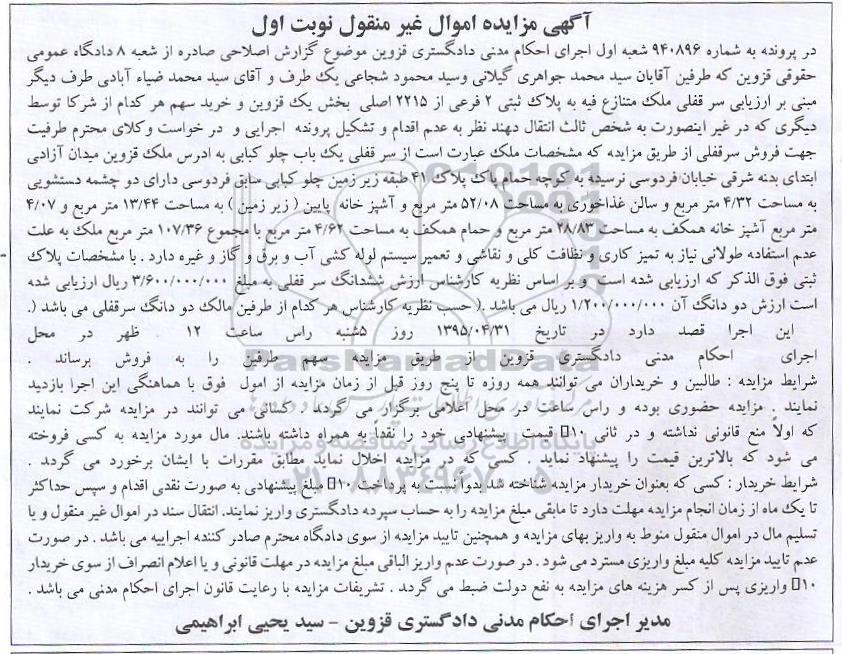 آگهی مزایده اموال غیر منقول نوبت اول
در پرونده به شماره ۹۴۰۸۹۶ شعبه اول اجرای احکام مدنی دادگستری قزوین موضوع گزارش اصلاحی صادره از شعبه ۸ دادگاه عمومی
حقوقی قزوین که طرفین آقایان سید محمد جواهری گیلانی وسید محمود شجاعی یک طرف و آقای سید محمد ضیاء آبادی طرف دیگر
مبنی بر ارزیابی سر قفلی ملک متنازع فیه به پلاک ثبتی ۲ فرعی از ۲۲۱۵ اصلی بخش یک قزوین و خرید سهم هر کدام از شرکا توسط
دیگری که در غیر اینصورت به شخص ثالث انتقال دهند نظر به عدم اقدام و تشکیل پرونده اجرایی و در خواست وکلای محترم طرفیت
جهت فروش سرقفلی از طریق مزایده که مشخصات ملک عبارت است از سر قفلی یک باب چلو کبابی به ادرس ملک قزوین میدان آزادی
ابتدای بدنه شرقی خیابان فردوسی نرسیده به کوچه حمام پاک پلاک ۴۱ طبقه زیر زمین چلو کبابی سابق فردوسی دارای دو چشمه دستشویی
به مساحت ۴/۳۲ متر مربع و سالن غذاخوری به مساحت ۵۲/۰۸ متر مربع و آشپز خانه پایین ( زیر زمین ) به مساحت ۱۳/۴۴ متر مربع و ۴/۰۷
متر مربع آشپز خانه همکف به مساحت ۲۸/۸۳ متر مربع و حمام همکف به مساحت ۴/۶۲ متر مربع با مجموع ۱۰۷/۳۶ متر مربع ملک به علت
عدم استفاده طولانی نیاز به تمیز کاری و نظافت کلی و نقاشی و تعمیر سیستم لوله کشی آب و برق و گاز و غیره دارد . با مشخصات پلاک
ثبتی فوق الذکر که ارزیابی شده است و بر اساس نظریه کارشناس ارزش ششدانگ سر قفلی به مبلغ ۳/۶۰۰/۰۰۰/۰۰۰ ریال ارزیابی شده
است ارزش دو دانگ آن ۱/۲۰۰/۰۰۰/۰۰۰ ریال می باشد .( حسب نظریه کارشناس هر کدام از طرفین مالک دو دانگ سرقفلی می باشد (.
این اجرا قصد دارد در تاریخ ۱۳۹۵/۰۴/۳۱ روز ۵شنبه راس ساعت ۱۲ . ظهر در محل
اجرای احکام مدنی دادگستری قزوین از طریق مزایده سهم طرفین را به فروش برساند .
شرایط مزایده : طالبین و خریداران می توانند همه روزه تا پنج روز قبل از زمان مزایده از امول فوق با هماهنگی این اجرا بازدید
نمایند . مزایده حضوری بوده و راس ساعت در محل اعلامی برگزار می گردد . کسانی می توانند در مزایده شرکت نمایند
که اولاً منع قانونی نداشته و در ثانی ۱۰ قیمت پیشنهادی خود را نقداً به همراه داشته باشند. مال مورد مزایده به کسی فروخته
می شود که بالاترین قیمت را پیشنهاد نماید . کسی که در مزایده اخلال نماید مطابق مقررات با ایشان برخورد می گردد .
شرایط خریدار : کسی که بعنوان خریدار مزایده شناخته شد بدوا نسبت به پرداخت ۱۰ مبلغ پیشنهادی به صورت نقدی اقدام و سپس حداکثر
تا یک ماه از زمان انجام مزایده مهلت دارد تا مابقی مبلغ مزایده را به حساب سپرده دادگستری واریز نمایند. انتقال سند در اموال غیر منقول و یا
تسلیم مال در اموال منقول منوط به واریز بهای مزایده و همچنین تایید مزایده از سوی دادگاه محترم صادر کننده اجراییه می باشد . در صورت
عدم تایید مزایده کلیه مبلغ واریزی مسترد می شود . در صورت عدم واریز الباقی مبلغ مزایده در مهلت قانونی و یا اعلام انصراف از سوی خریدار
۱۰ واریزی پس از کسر هزینه های مزایده به نفع دولت ضبط می گردد . تشریفات مزایده با رعایت قانون اجرای احکام مدنی می باشد .
مدیر اجرای احکام مدنی دادگستری قزوین – سید یحیی ابراهیمی
ParsNamadData
پایگاه اطلاع رسانی مناقصه و مزایده